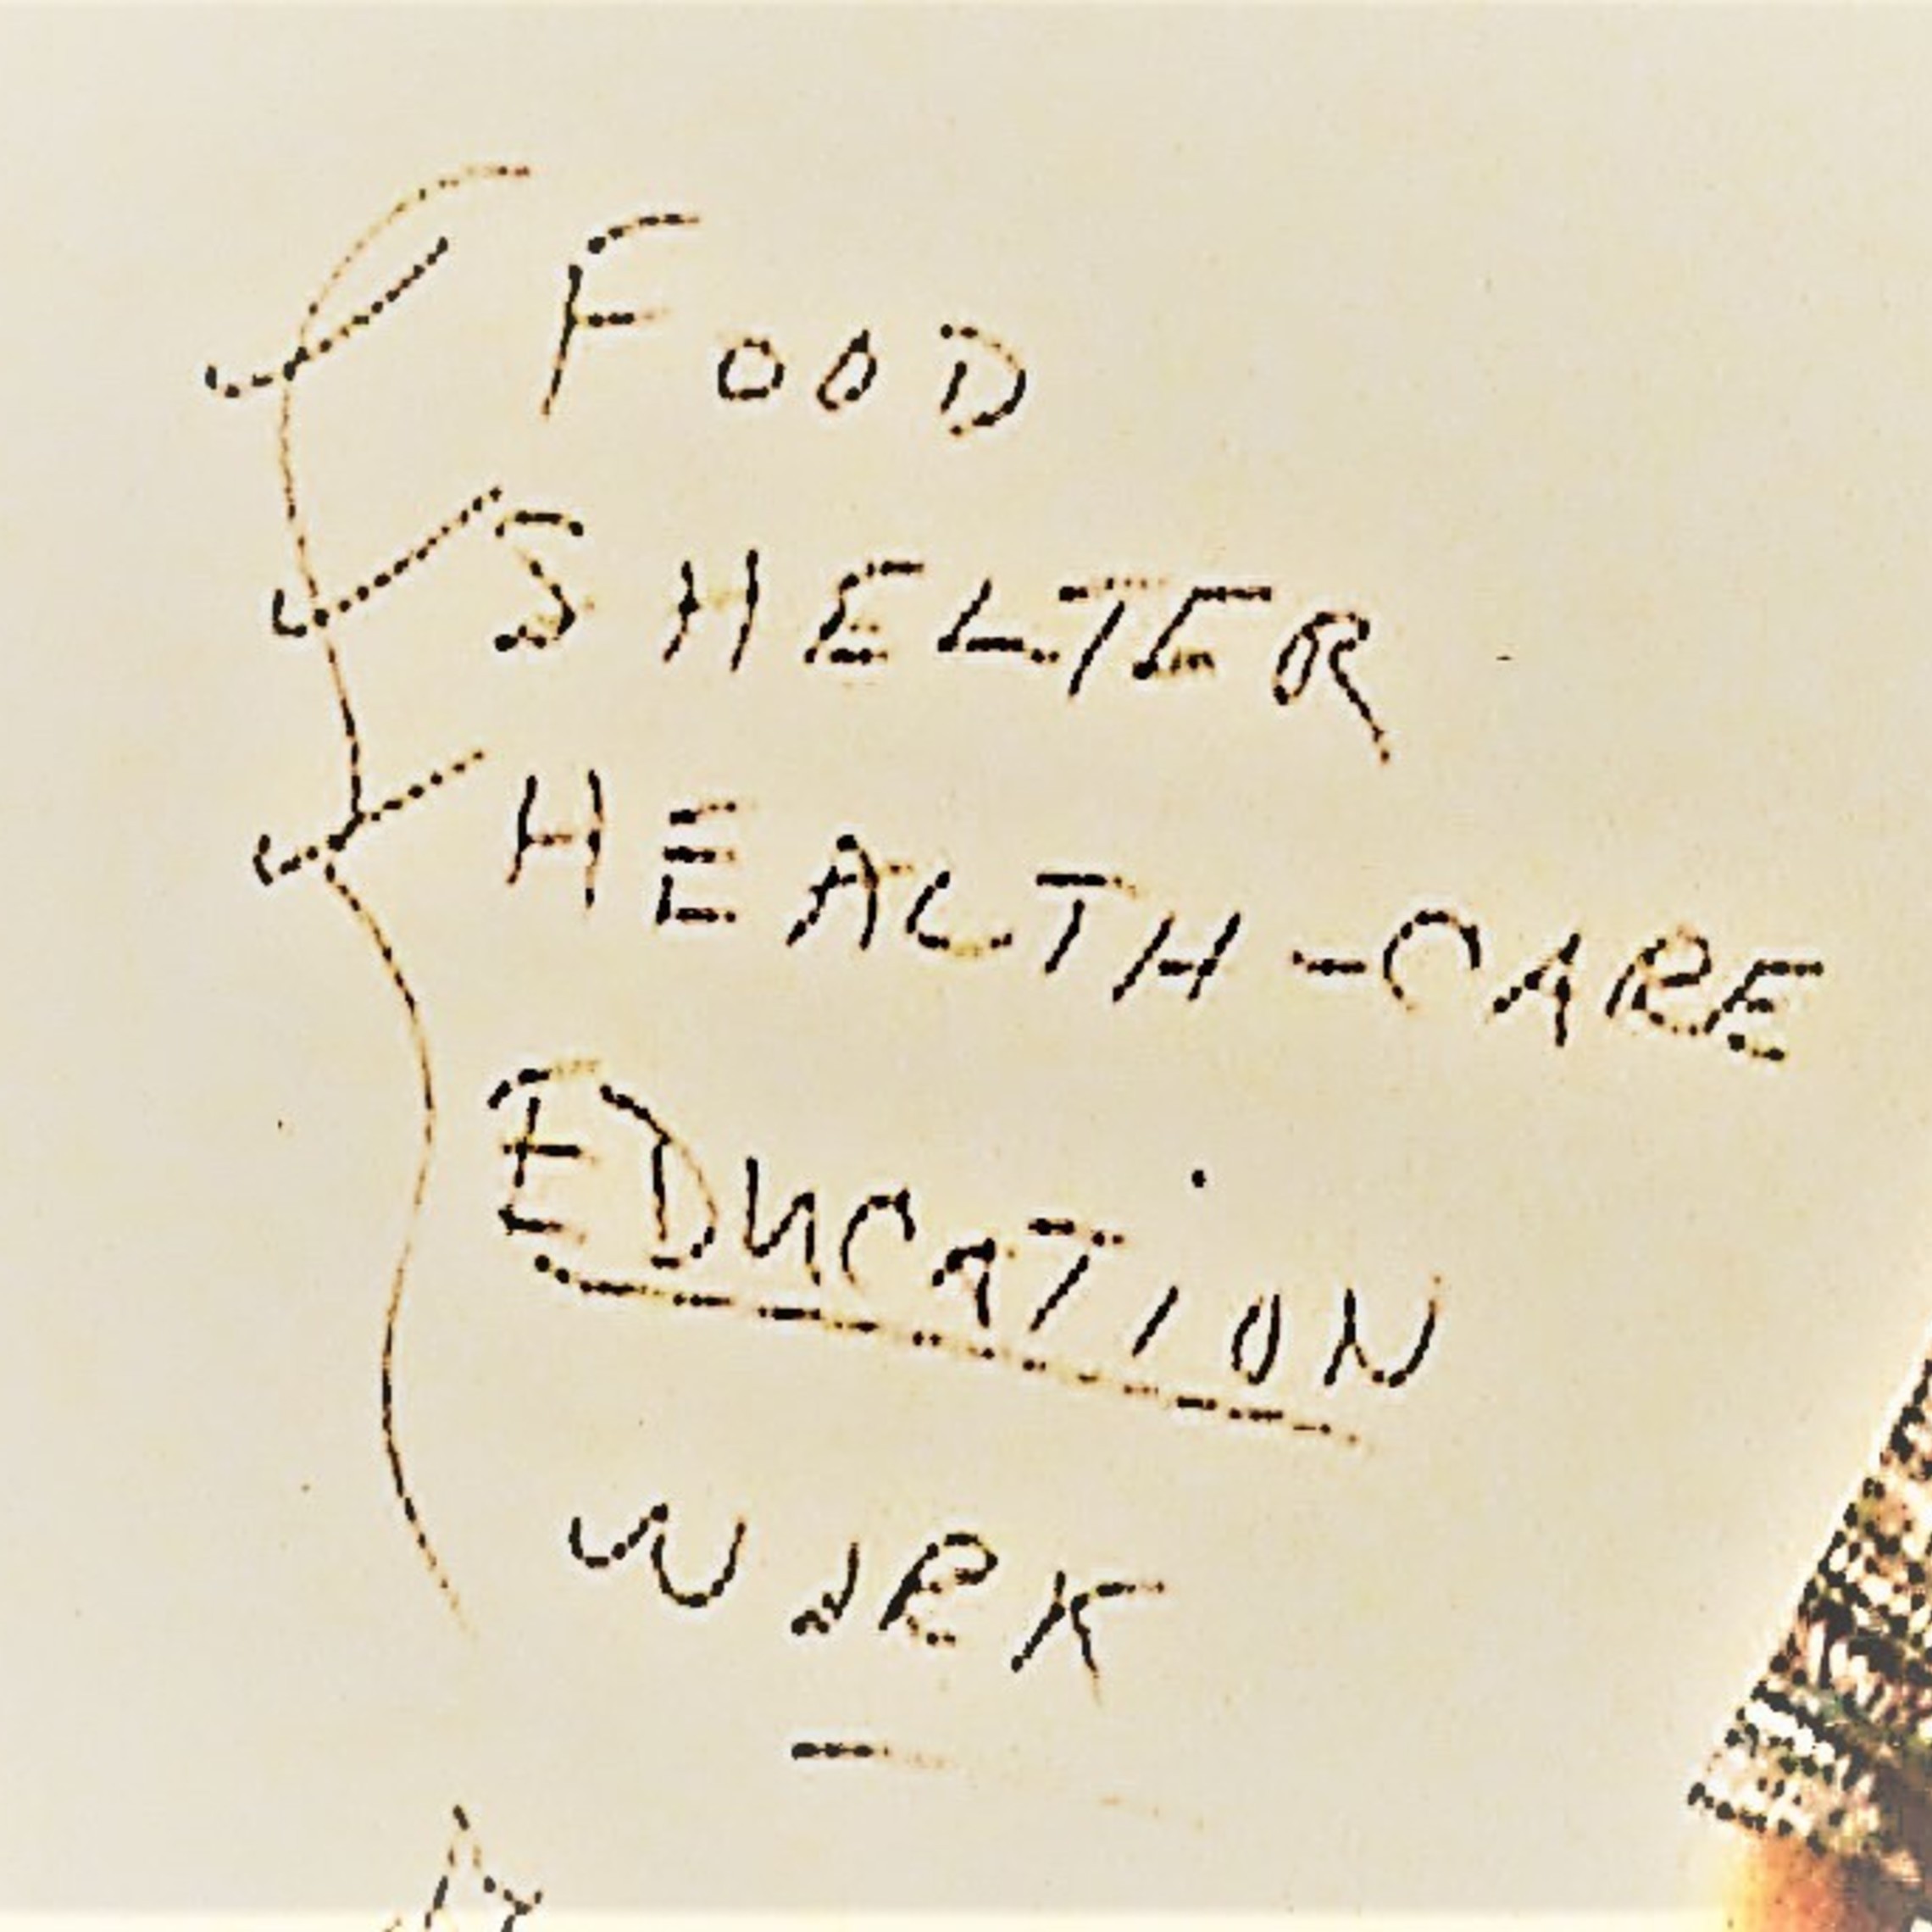 FOOD
SHELTER
HEALTH-CARE
EDUCATiON
WORK